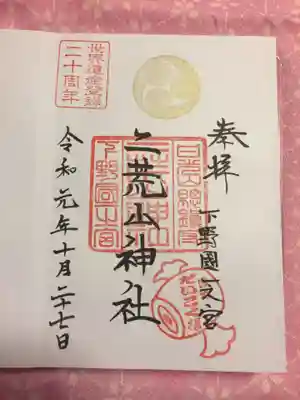 奉拝
下野國一之宮
二荒山神社
令和元年十月二十七日
世界遺産登録
二十周年